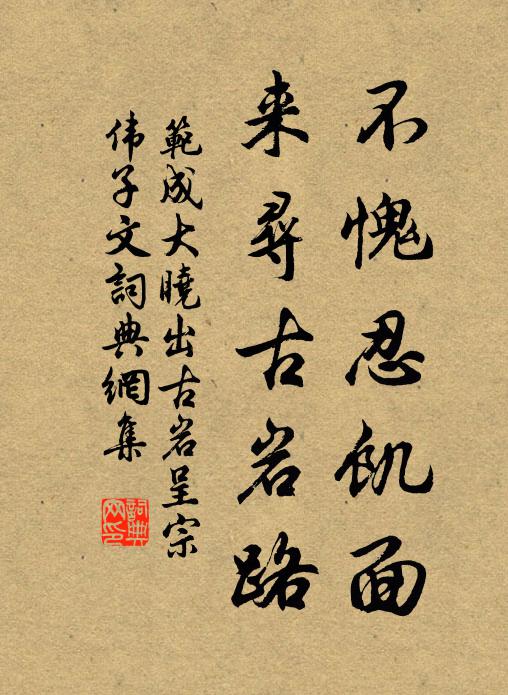 不愧忍飢面
来尋古岩路
範成大曉出古岩呈宗
伟子文詞典網集
詞典
网印